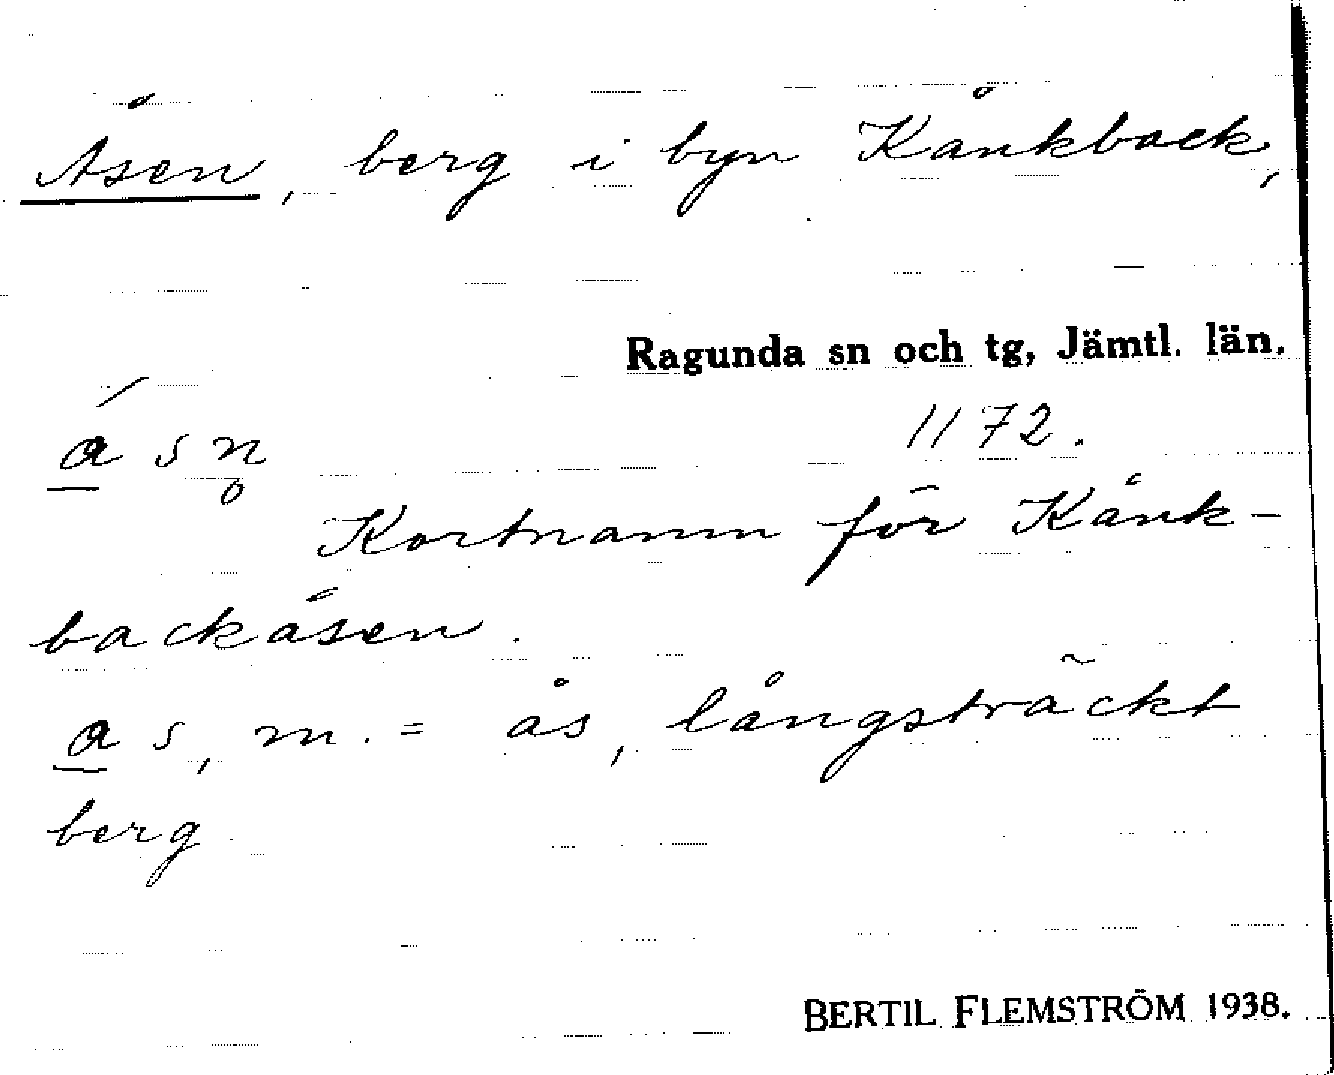 Åsen, berg i byn Kånkback,
Ragunda sn och tg, Jämtl. län.
á s n̥
1172.
Kortnamn för Kånk-
backåsen.
a s, m. = ås, långsträckt
berg
BERTIL FLEMSTRÖM 1938.